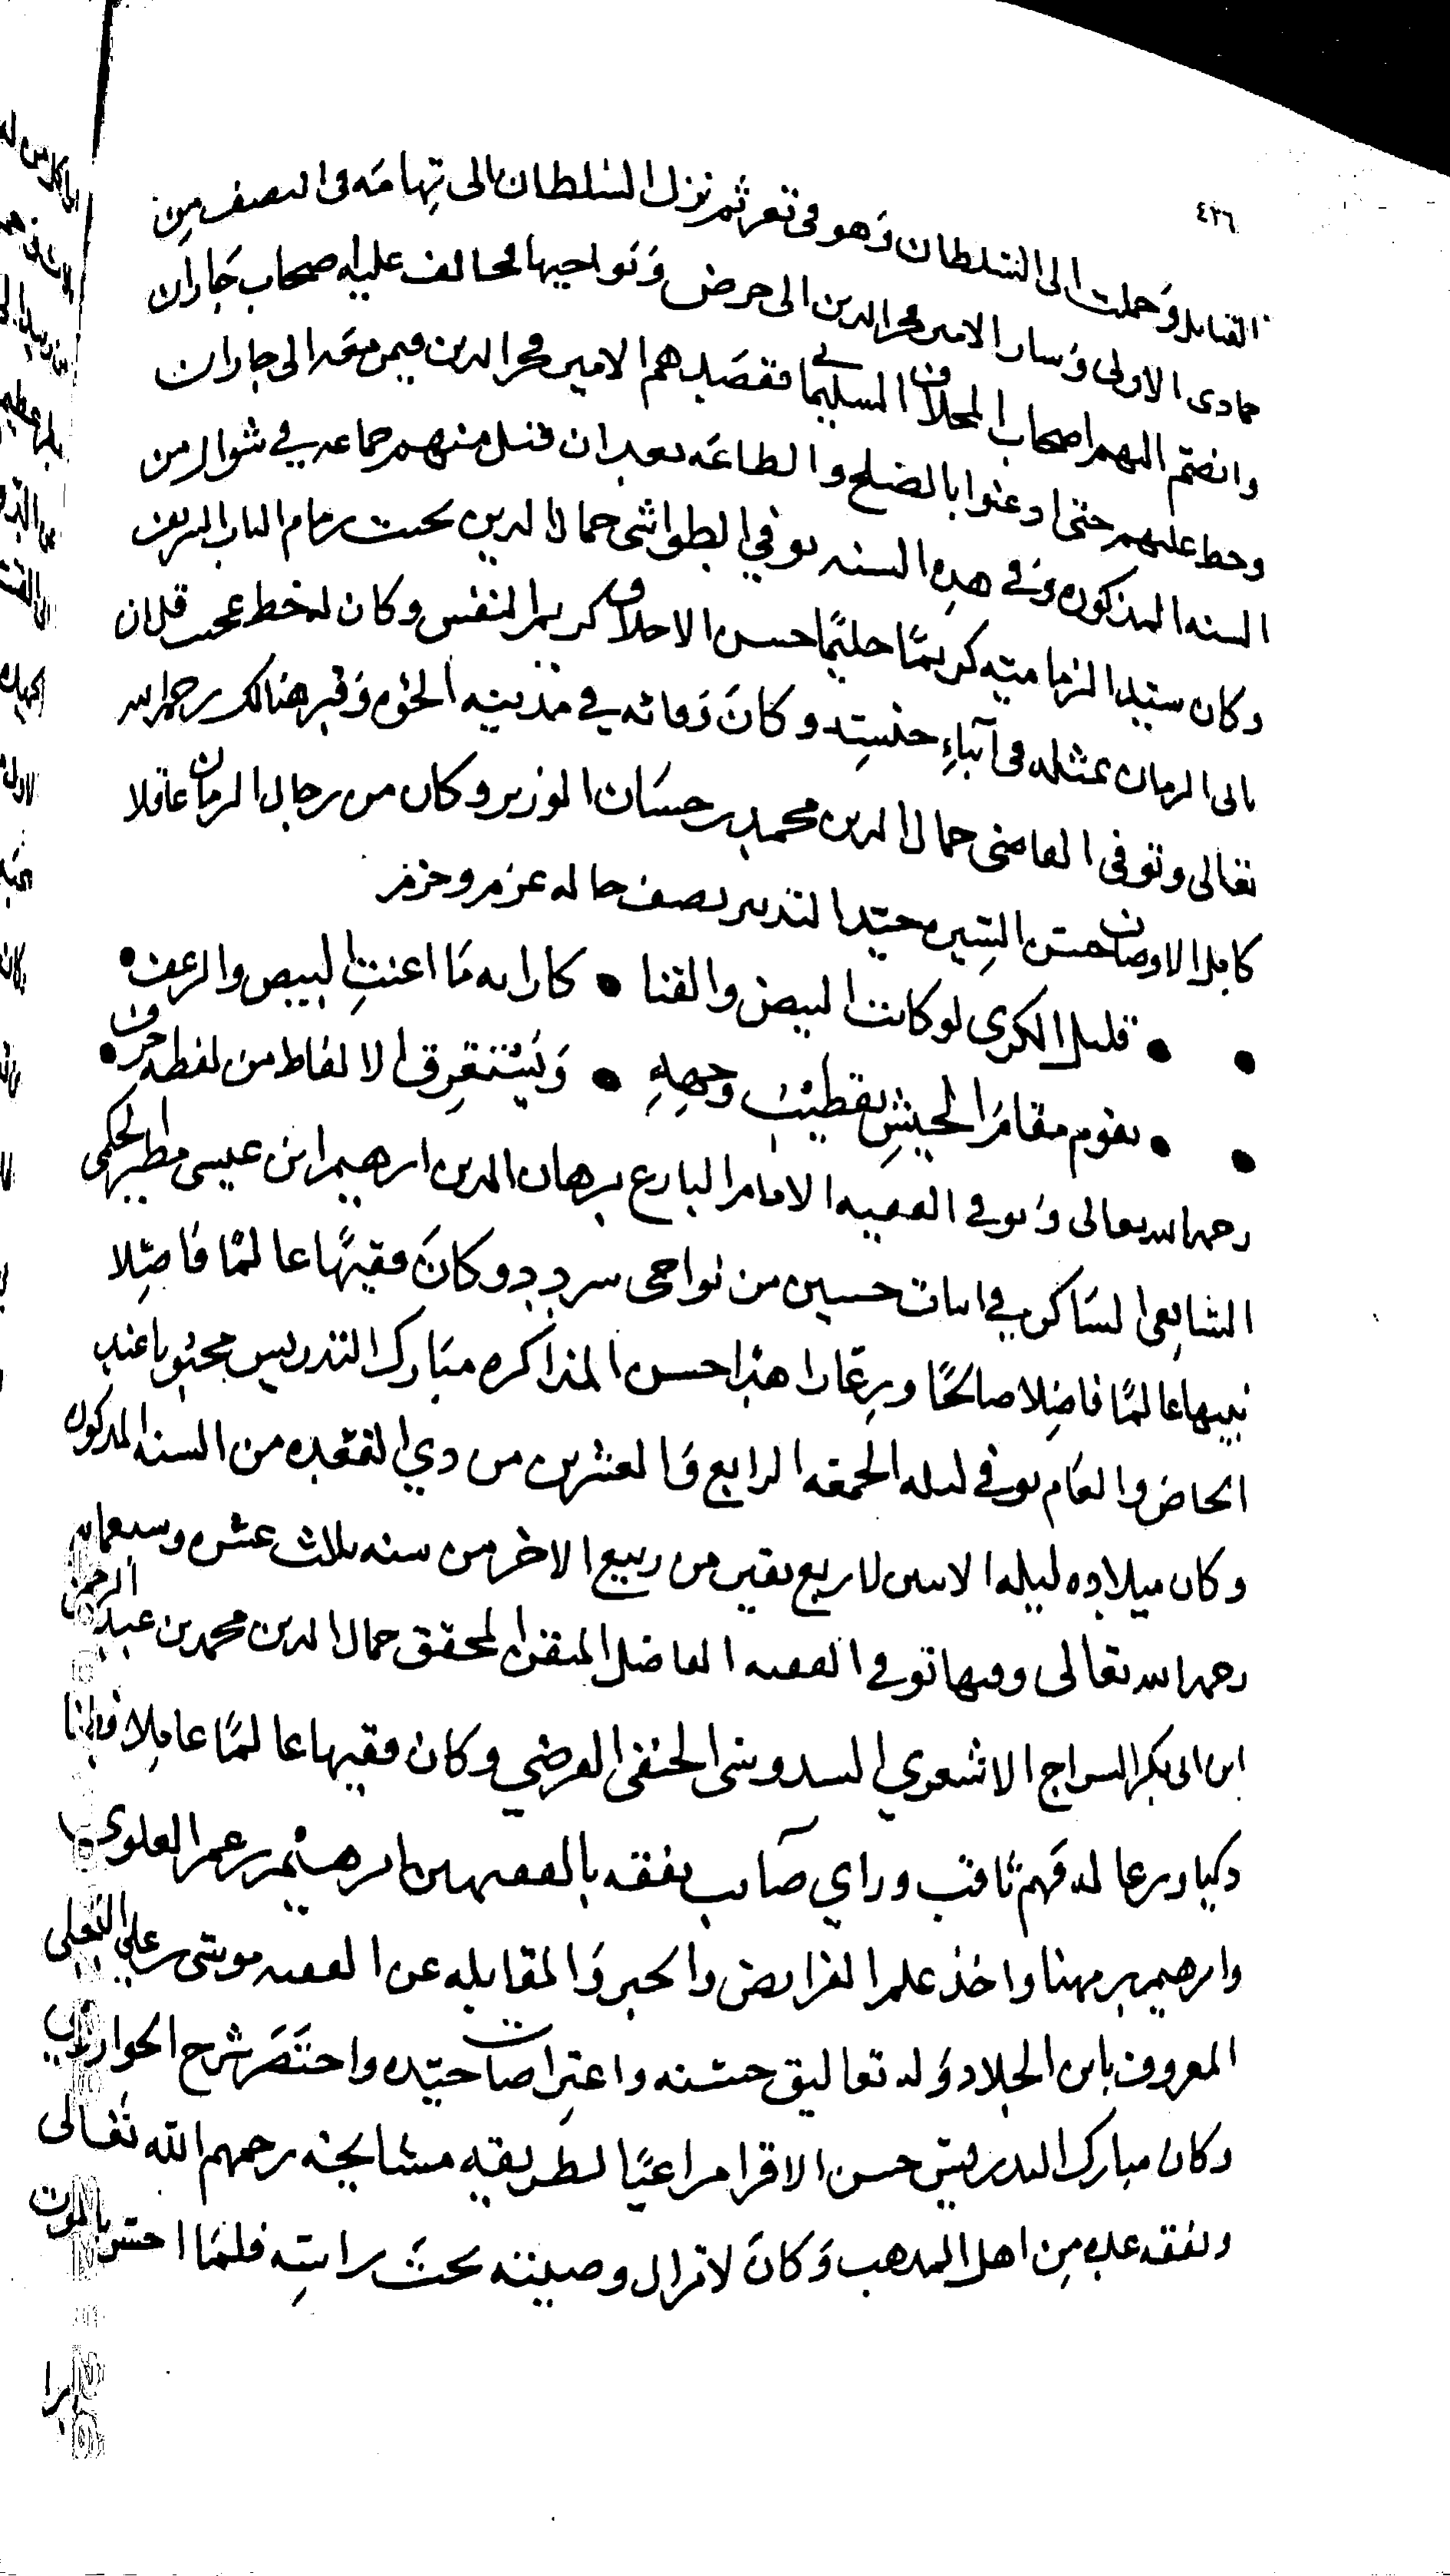 ٤٣٦
القبايل وحملت الى السلطان وَهو في تعز ثم نزل السلطان الى تِهامَه في النصف مِن
جمادى الاولى وَسار الامير فخر الدين الى حرض وَنواحيها لمخالف عليه اصحاب جَازان
وانضم اليهم اصحاب المخلاف السليماني فقصدهم الامير فخر الدين فيمن معَه الى جازان
وحط عليهم حتى اذعنوا بالصلح والطاعَه بعد ان قتل منهم جماعه في شوال من
السنه المذكوره وَفي هذه السنه توفي الطواشي جمال الدين بحت زمام الباب الشريف
وكان سيد الزماميه كريمًا حليمًا حسن الاخلاق كريم النفس وكان له خط عجب قل ان
ياتي الزمان بمثله في آبناءِ جنسِه وكانَ وَفاته في مدينه الجؤه وَقبر هنالك رحمه الله
تعالى وتوفي القاضي جمال الدين محمد بن حسَان الوزير وكان من رجال الزمان عاقلا
كامل الاوصاف حسن السِيره جيّد التدبير نصف حاله عزم وحزم
قليل الكرى لو كانت البيض والقنا • كارايه مَا اغنتِ البيض والزعف
يقوم مقامَ الجيشِ تقطيْب وَجهِهِ • وَيَسْتغرِق الالفاظ من لفظه حرف
رحمه الله تعالى وَتوفي الفقيه الامام البارع برهان الدين ابرهيم ابن عيسى مطير الحكمي
الشافعي الساكن في ابيات حسين من نواحي سردد وكانَ فقيهًا عالمًا فاضِلا
نبيها عالمًا فاضِلا صالحًا ورِعًا زاهدا حسن المذاكره مبَارك التدريس محبُوبا عند
الخاص والعَام توفي ليله الجمعه الرابع وَالعشرين من ذي القعده من السنه المذكوره
وكان ميلاده ليله الاثنين لاربع بقين من ربيع الاخر من سنه ثلاث عشره وسبعمايه
رحمه الله تعالى وفيها توفي الفقيه الفاضل المتقن المحقق جمال الدين محمد بن عبد الرحمن
ابن ابي بكر السراج الاشعري السدوسي الحنفي الفرضي وكان فقيها عالمًا عامِلا
ذكيا ورعا له فَهم ثاقب وراي صآيب تفقه بالفقيهين ابرهيْم بن عمر العلوي
وابرهيم بن مهنا واخذ علم الفرايض والجبر وَالمقابله عن الفقيه موسى بن علي النخلي
المعروف بابن الجلاد وَله تعاليق حسنه واعتِراضات جيّده واختَصَر شرح الخوارزمي
وكان مبارك التدريس حسن الاقرا مراعيًا لطريقه مشايخه رحمهم الله تعَالى
وتفقه عليه مِن اهل المذهب وَكانَ لا تزال وصيته تحتَ راسِه فلمَا احسّ بالموت